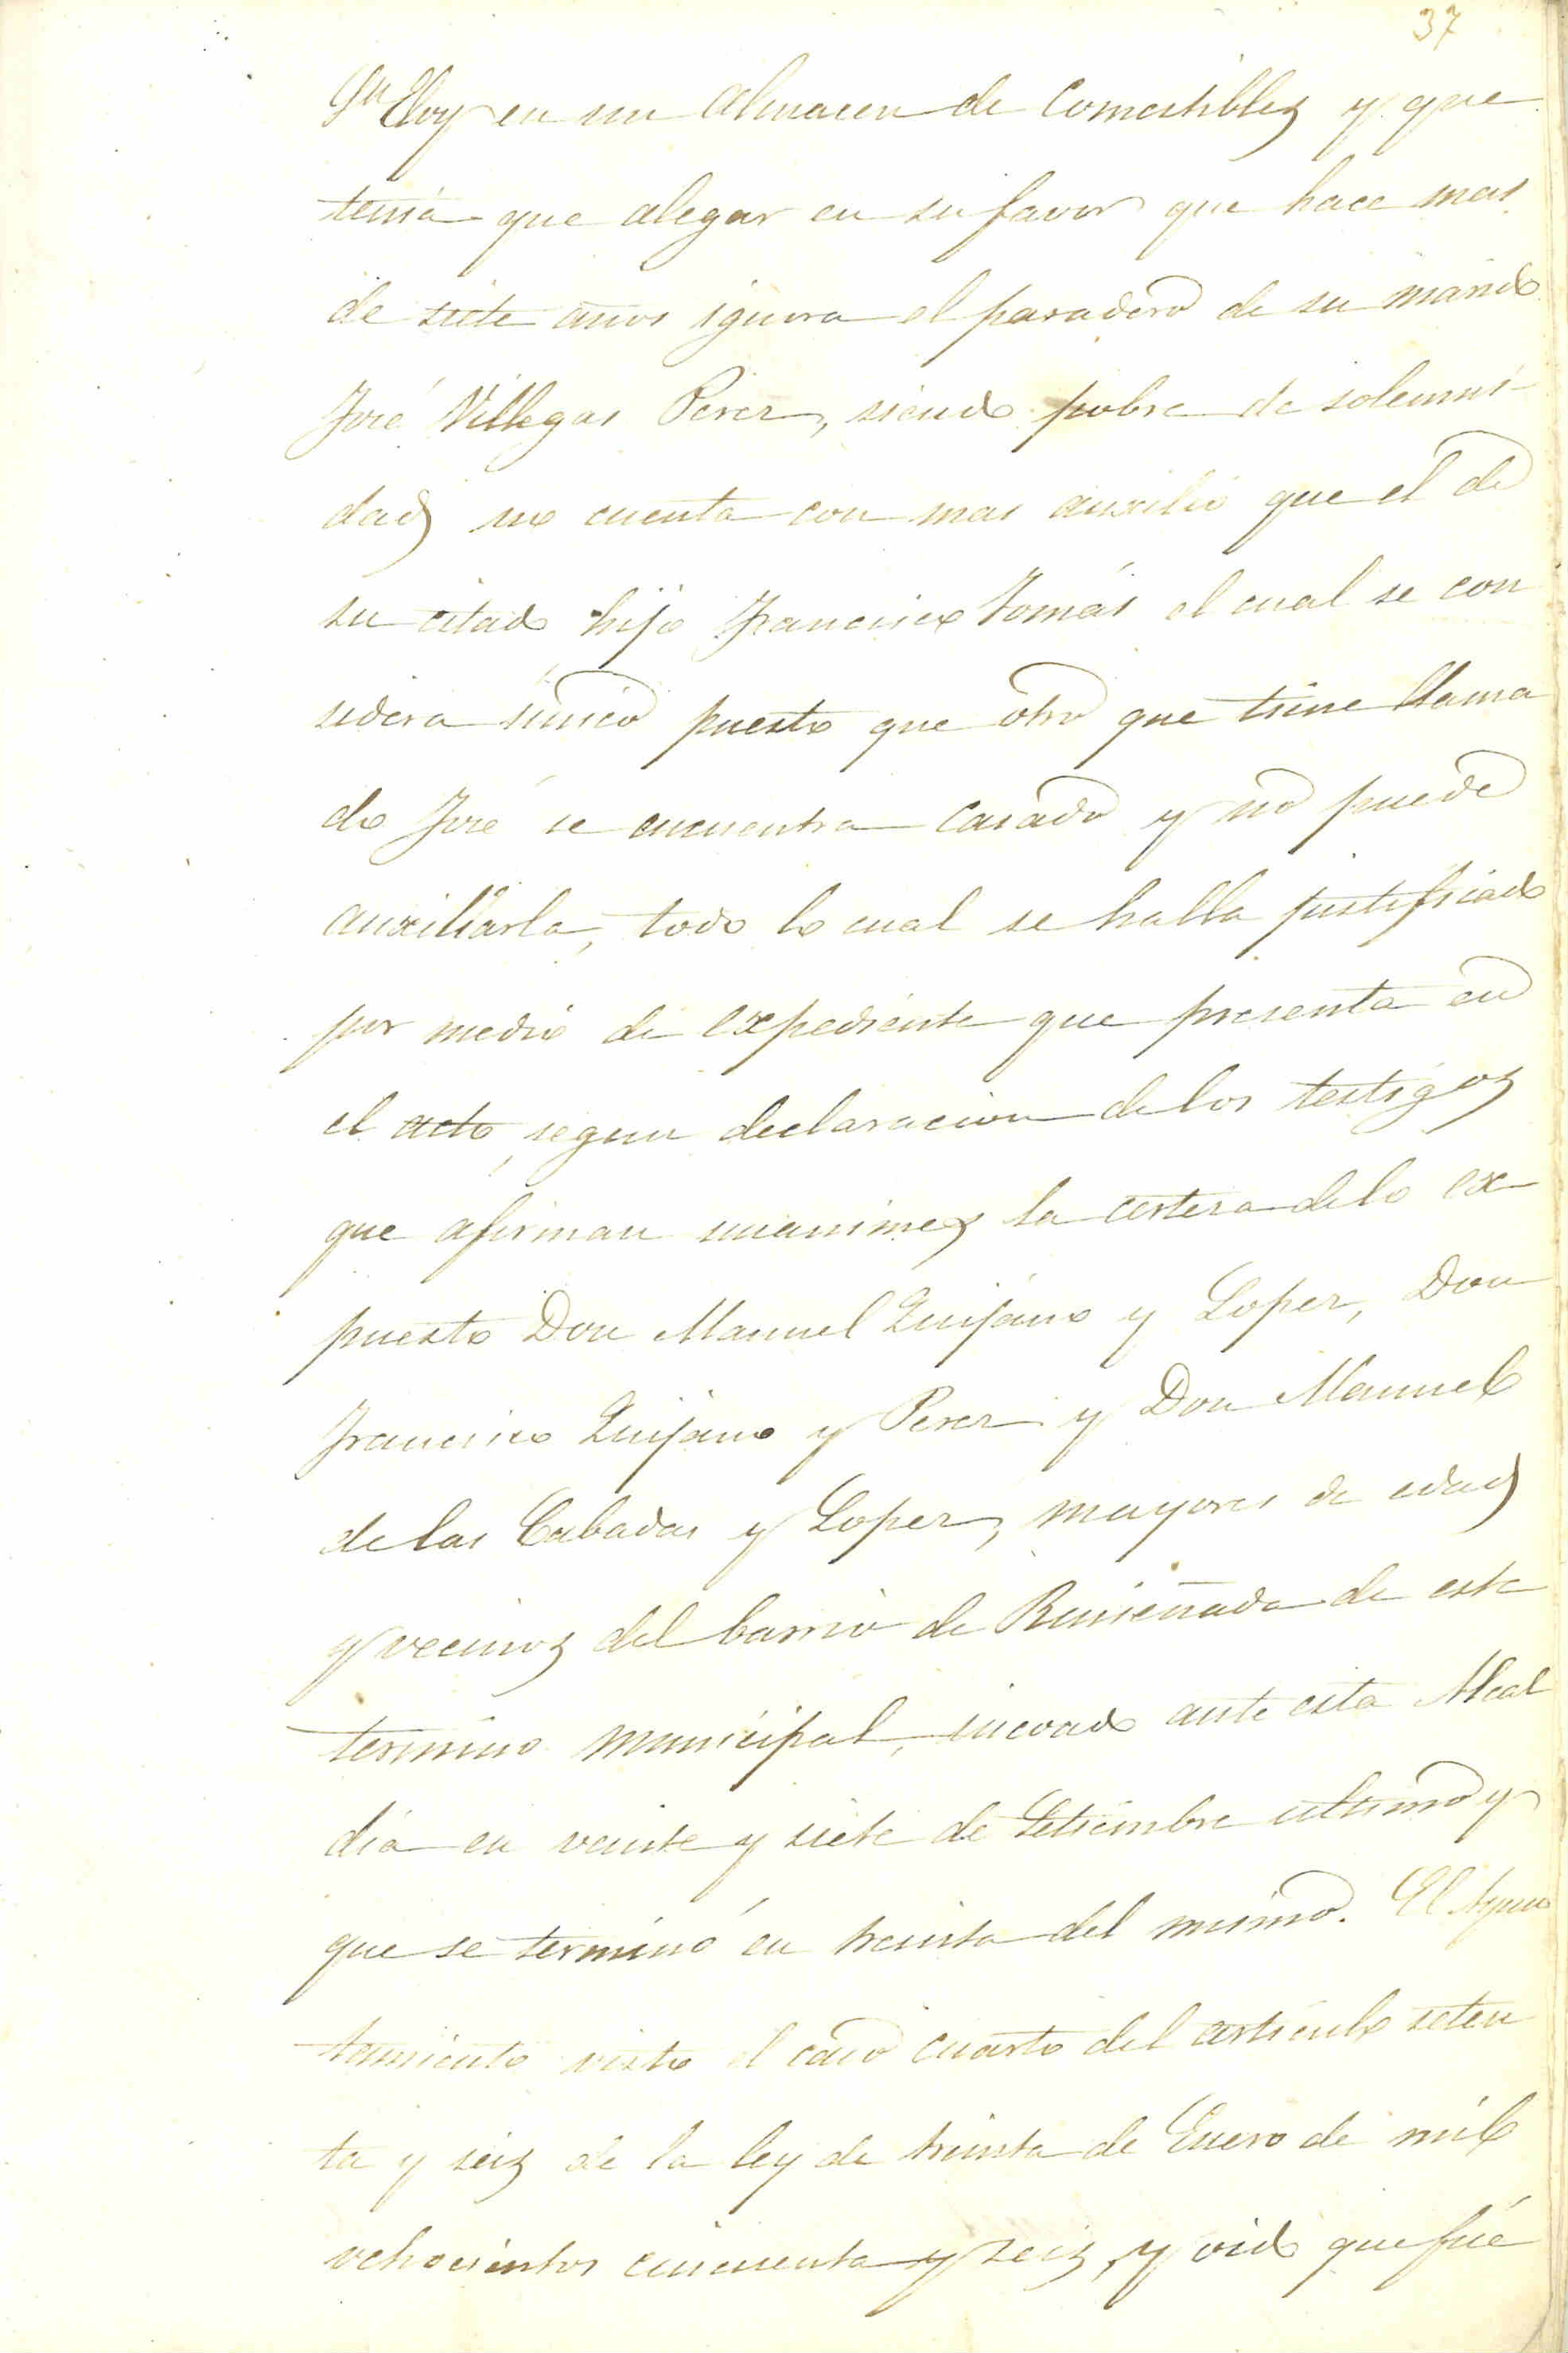 37
Sn Eloy en un almacen de comestibles y que
tenia que alegar en su favor que hace mas
de siete años ignora el paradero de su marido
José Villegas Perez, siendo pobre de solemni-
dad no cuenta con mas auxilio que el de
su citado hijo Francisco Tomás el cual se con
sidera único puesto que otro que tiene llama
do José se encuentra casado y no puede
auxiliarla, todo lo cual se halla justificado
por medio de expediente que presenta en
el acto, segun declaracion de los testigos
que afirman unanimes la certeza de lo ex-
puesto Don Manuel Quijano y Lopez, Don
Francisco Quijano y Perez y Don Manuel
de las Cabadas y Lopez, mayores de edad
y vecinos del barrio de Ruiseñada de este
termino municipal, incoado ante esta Alcal
dia en veinte y siete de Setiembre ultimo y
que se terminó en treinta del mismo. El Ayun
tamiento visto el caso cuarto del articulo seten
ta y seis de la ley de treinta de Enero de mil
ochocientos cincuenta y seis, y oido que fué